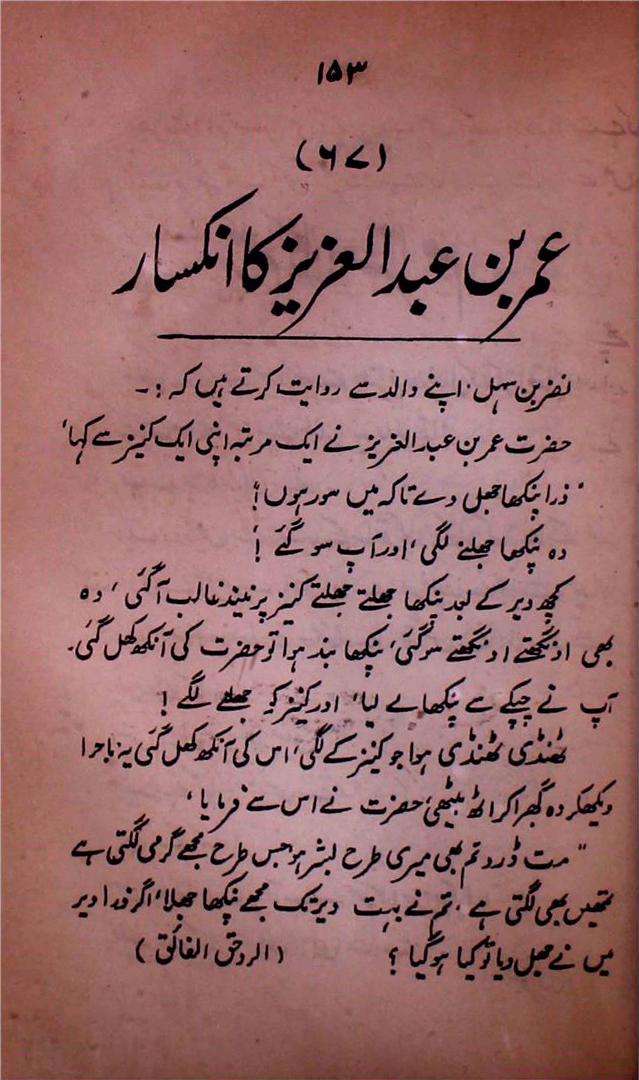 ۱۵۳
(۶۷)
عمر بن عبد العزیز کا انکسار
نضر بن سہل، اپنے والد سے روایت کرتے ہیں کہ :۔
حضرت عمر بن عبد العزیز نے ایک مرتبہ اپنی ایک کنیز سے کہا،
"ذرا پنکھا جھل دے تاکہ میں سو رہوں!"
وہ پنکھا جھلنے لگی، اور آپ سو گئے!
کچھ دیر کے بعد پنکھا جھلتے جھلتے کنیز پر نیند غالب آگئی، وہ
بھی اونگھتے اونگھتے سو گئی، پنکھا بند ہوا تو حضرت کی آنکھ کھل گئی۔
آپ نے چپکے سے پنکھا لے لیا، اور کنیز کو جھلنے لگے!
ٹھنڈی ٹھنڈی ہوا جو کنیز کے لگی، اس کی آنکھ کھل گئی یہ ماجرا
دیکھکر وہ گھبرا کر اٹھ بیٹھی، حضرت نے اس سے فرمایا،
"مت ڈرو تم بھی میری طرح بشر ہو جس طرح مجھے گرمی لگتی ہے
تمھیں بھی لگتی ہے، تم نے بہت دیر تک مجھے پنکھا جھلا، اگر ذرا دیر
میں نے جھل دیا تو کیا ہو گیا؟ (الروض الفائق)